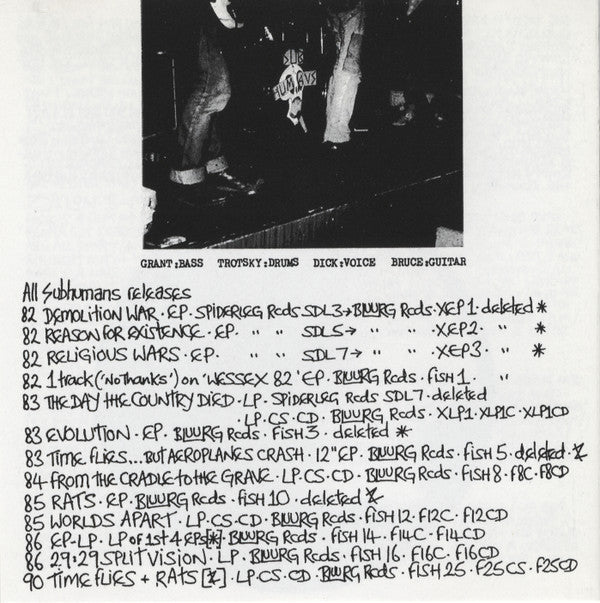 SUB
HUMANS
GRANT:BASS TROTSKY:DRUMS DICK:VOICE BRUCE:GUITAR
All Subhumans releases
82 DEMOLITION WAR · EP · SPIDERLEG Rcds SDL3→BLUURG Rcds · XEP1 · deleted *
82 REASON FOR EXISTENCE · EP · " " SDL5→ " " · XEP2 · " *
82 RELIGIOUS WARS · EP · " " SDL7→ " " · XEP3 · " *
82 1 track ('No Thanks') on 'WESSEX 82' EP · BLUURG Rcds · FISH 1 · "
83 THE DAY THE COUNTRY DIED · LP · SPIDERLEG Rcds SDL7 · deleted
· LP · CS · CD · BLUURG Rcds · XLP1 · XLP1C · XLP1CD
83 EVOLUTION · EP · BLUURG Rcds · FISH 3 · deleted *
83 TIME FLIES... BUT AEROPLANES CRASH · 12" EP · BLUURG Rcds · FISH 5 · deleted ·
84 FROM THE CRADLE to the GRAVE · LP · CS · CD · BLUURG Rcds · FISH 8 · F8C · F8CD
85 RATS · EP · BLUURG Rcds · FISH 10 · deleted
85 WORLDS APART · LP · CS · CD · BLUURG Rcds · FISH 12 · F12C · F12CD
86 EP-LP · LP of 1st 4 EPs [*] · BLUURG Rcds · FISH 14 · F14C · F14CD
86 29:29 SPLIT VISION · LP · BLUURG Rcds · FISH 16 · F16C · F16CD
90 TIME FLIES + RATS [ ] · LP · CS · CD · BLUURG Rcds · FISH 25 · F25CS · F25CD